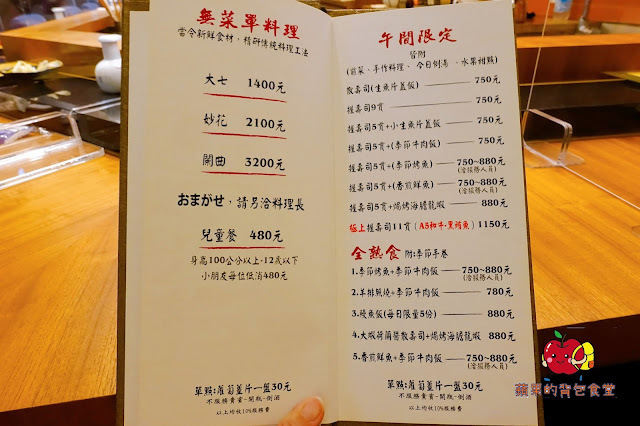 無菜單料理
當令新鮮食材，精研傳統料理工法
大七 1400元
妙花 2100元
鬧曲 3200元
おまがせ，請另洽料理長
兒童餐 480元
身高100公分以上·12歲以下
小朋友每位低消480元
單點:蘿蔔薑片一盤30元
不服務賣賓-開瓶-倒酒
以上均收10%服務費
午間限定
皆附
(前菜、手作料理、今日例湯、水果甜點)
散壽司(生魚片蓋飯) 750元
握壽司9貫 750元
握壽司5貫+小生魚片蓋飯 750元
握壽司5貫+(季節牛肉飯) 750元
握壽司5貫+(季節烤魚) 750~880元
(洽服務人員)
握壽司5貫+(香煎鮮魚) 750~880元
(洽服務人員)
握壽司5貫+焗烤海膽龍蝦 880元
極上握壽司11貫(A5和牛·黑鮪魚) 1150元
全熟食 附:季節手卷
1.季節烤魚+季節牛肉飯 750~880元
(洽服務人員)
2.羊排照燒+季節牛肉飯 780元
3.鰻魚飯(每日限量5份) 880元
4.大蝦荷蘭醬散壽司+焗烤海膽龍蝦 880元
5.香煎鮮魚+季節牛肉飯 750~880元
(洽服務人員)
單點:蘿蔔薑片一盤30元
不服務賣賓-開瓶-倒酒
以上均收10%服務費
蘋果的背包食堂